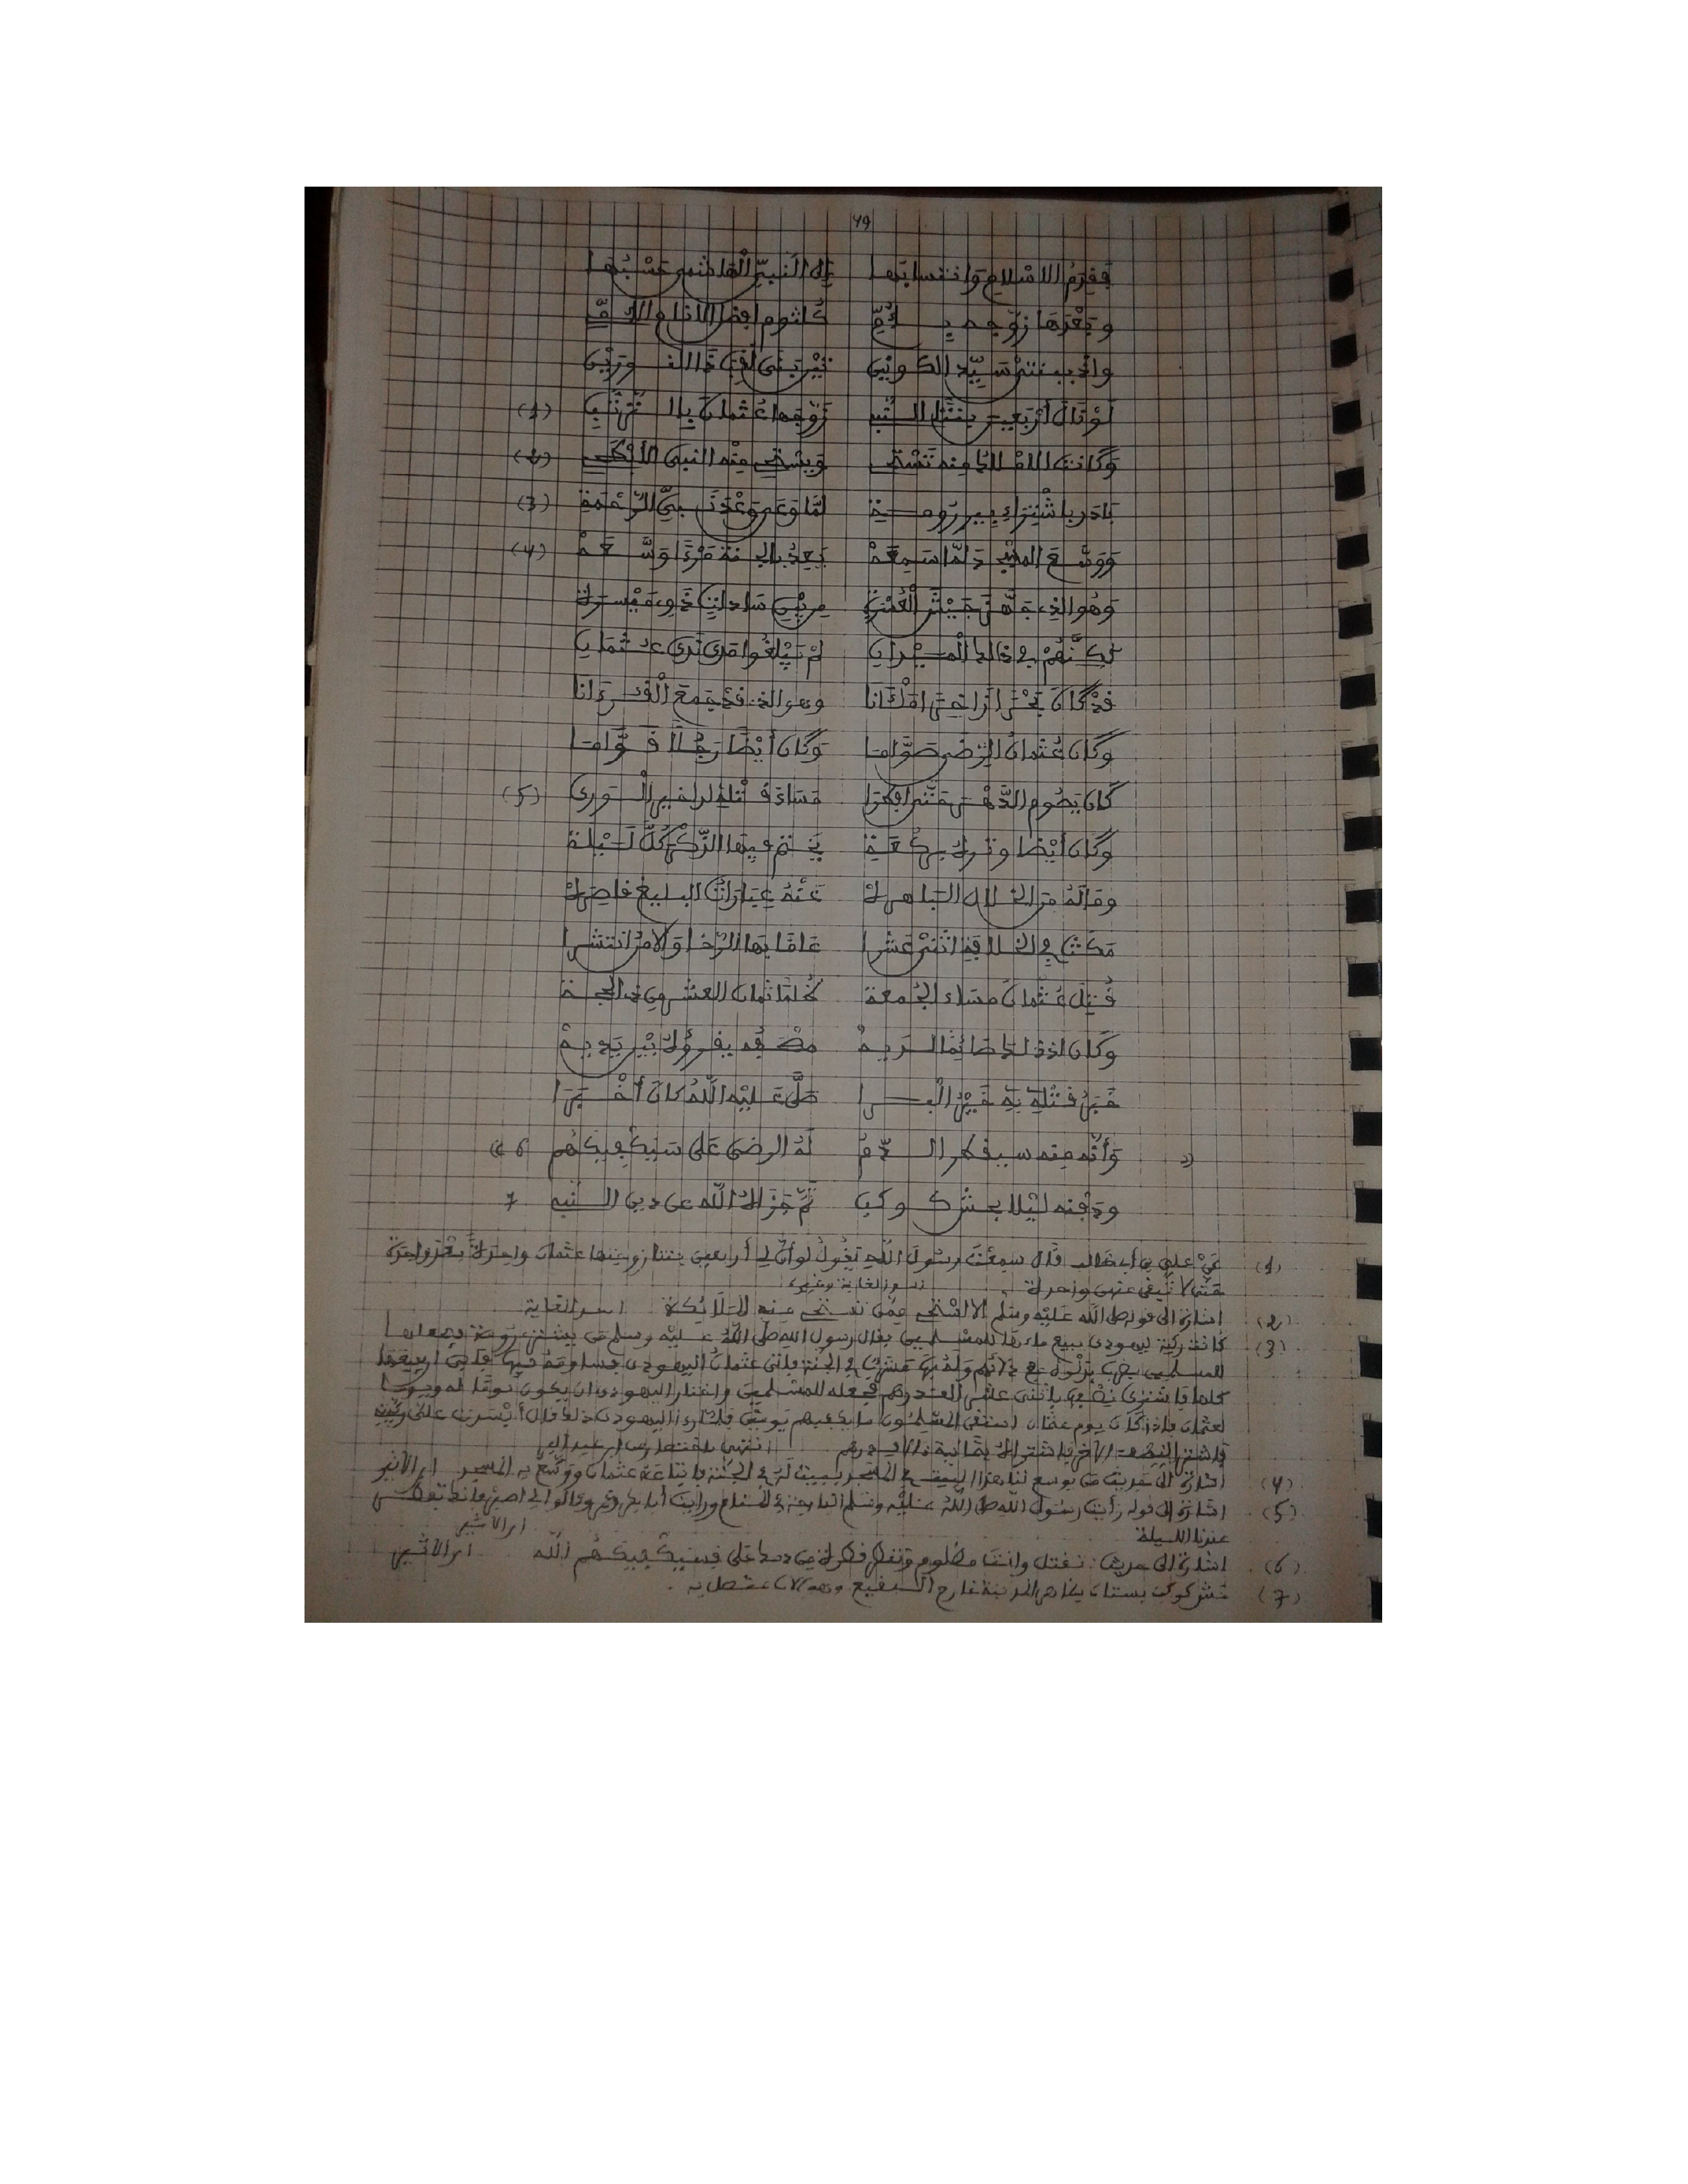 49
فقدم الاسلام وانتسابها إلى النبي الهاشمي حسبها
وبعدها زوجه بأم كلثوم افضل الانام الامي
واذ ببنتي سيد الكونين
لو نال أربعين بنتا النبي زوجها عثمان بالترتيب (1)
وكانت الاملاك منه تستحي ويستحي منه النبي (2)
بادر باشتراء بير رومة لما وعى وعد نبي الرحمة (3)
ووسع المسجد لما سمعه يعد بالجنة من وسعه (4)
وهو الذي جهز جيش العسرة من بين سادات ذوي ميسرة
لكنهم في ذلك الميدان لم يبلغوا مدى ندى عثمان
قد كان وهو الذي قد جمع القرءانا
وكان عثمان الرضى صواما وكان أيضا رجلا قواما
كان يصوم الدهر حتى افطرا مساء قتله لدى خير الورى (5)
وكان أيضا وتره بركعة يختم فيها الذكر كل ليلة
وماله من الخلال الباهره عنه عبارات البليغ قاصره
مكث في الخلافة اثنتي عشرا عاما بها الرخا والامر انتشرا
قتل عثمان مساء الجمعة ثمان العشر من ذي الحجة
وكان اذ ذاك صائما لديه مصحفه يقرؤه بين يديه
خبر قتله به خير الورى صلى عليه الله كان أخبرا
وأنه منه سيقطر الدم له الرضى على سيكفيكهم 6
ودفنه ليلا بحش كوكب ثم جزاه الله عن دين النبي 7
(1) عن علي بن أبي طالب قال سمعت رسول الله يقول لو أن لي أربعين بنتا زوجتها عثمان واحدة بعد واحدة
حتى لا تبقى منهن واحدة أسد الغابة وغيره
(2) اشارة الى قوله صلى الله عليه وسلم الا استحي ممن تستحي منه الملائكة اسد الغابة
(3) كانت ركية ليهودي يبيع ماءها للمسلمين فقال رسول الله صلى الله عليه وسلم من يشتري رومة فيجعلها
للمسلمين يضرب بدلوه مع دلائهم وله بها مشرب في الجنة فأتى عثمان اليهودي فساومه فيها فأبى أن يبيعها
كلها فاشترى نصفها باثني عشر ألف درهم فجعله للمسلمين
لعثمان فاذا كان يوم عثمان استقى المسلمون ما يكفيهم يومين فلما رءا اليهودي ذلك قال أفسدت علي ركيتي
فاشتر النصف الآخر فاشتراه بثمانية ءالاف درهم انتهى باختصار من ابن عبد البر
(4) اشارة الى حديث من يوسع لنا هذا البيت في المسجد ببيت له في الجنة فابتاعه عثمان ووسع به المسجد ابن الاثير
(5) اشارة الى قوله رأيت رسول الله صلى الله عليه وسلم البارحة في المنام ورأيت أبا بكر وعمر وقالوا لي اصبر فانك تفطر
عندنا الليلة ابن الاثير
(6) اشارة الى حديث: تقتل وانت مظلوم وتقطر قطرة من دمك على فسيكفيكهم الله ابن الاثير
(7) حش كوكب بستان بظاهر المدينة خارج البقيع وهو الآن متصل به.